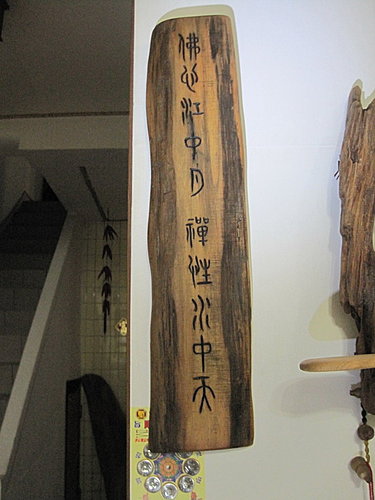 佛心江中月禪性水中天